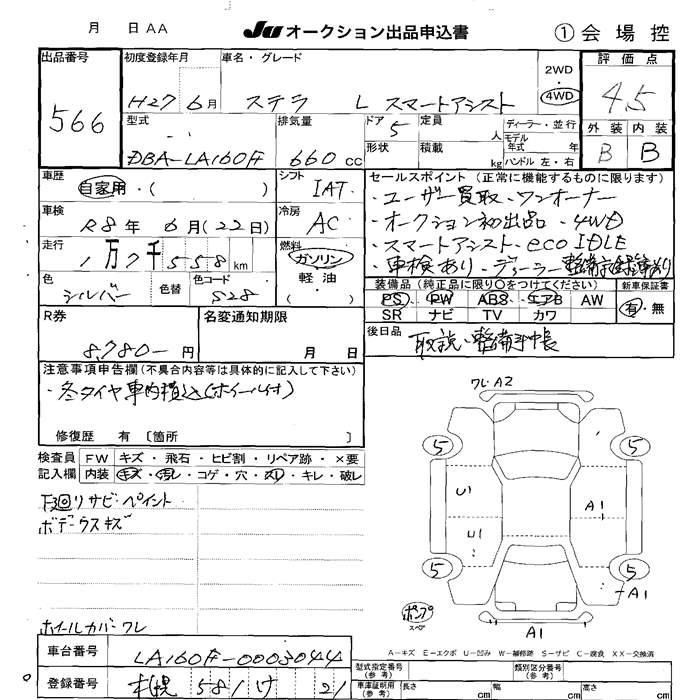 月 日 AA JU オークション出品申込書 ① 会場控
出品番号 初度登録年月 車名・グレード 2WD・4WD 評価点
566 H27 6月 ステラ L スマートアシスト 4.5
型式 排気量 ドア 5 定員 人 ディーラー・並行 外装 内装
DBA-LA160F 660 cc 形状 積載 kg モデル年式 年 ハンドル 左・右 B B
車歴 自家用・( ) シフト IAT セールスポイント(正常に機能するものに限ります)
・ユーザー買取・ワンオーナー
車検 R8年 6月(22日) 冷房 AC ・オークション初出品・4WD
走行 1万7千558km 燃料 ガソリン・軽・油 ・スマートアシスト・eco IDLE
・車検あり・ディーラー整備記録簿あり
色 シルバー 色替 色コード S28 装備品(純正品に限り〇をつけてください) 新車保証書
PS PW ABS エアB AW 有・無
SR ナビ TV カワ
R券 8,780- 円 名変通知期限 月 日 後日品 取説、整備手帳
注意事項申告欄(不具合内容等は具体的に記入して下さい)
・冬タイヤ車内積込(ホイール付)
修復歴 有〔箇所 〕
検査員 FW キズ・飛石・ヒビ割・リペア跡・×要
記入欄 内装 キズ・汚レ・コゲ・穴・スリ・キレ・破レ
下廻りサビ・ペイント
ボデーウスキズ
ホイールカバーワレ
ワレ・A2
5 5
U1 A1
U1
5 5
A1
ポンプ
スペア
A1
A-キズ E-エクボ U-凹み W-補修跡 S-サビ C-腐食 XX-交換済
車台番号 LA160F-0003044
型式指定番号(参考) 類別区分番号(参考)
登録番号 札幌 581 け 21
車庫証明用(参考) 長さ cm 幅 cm 高さ cm